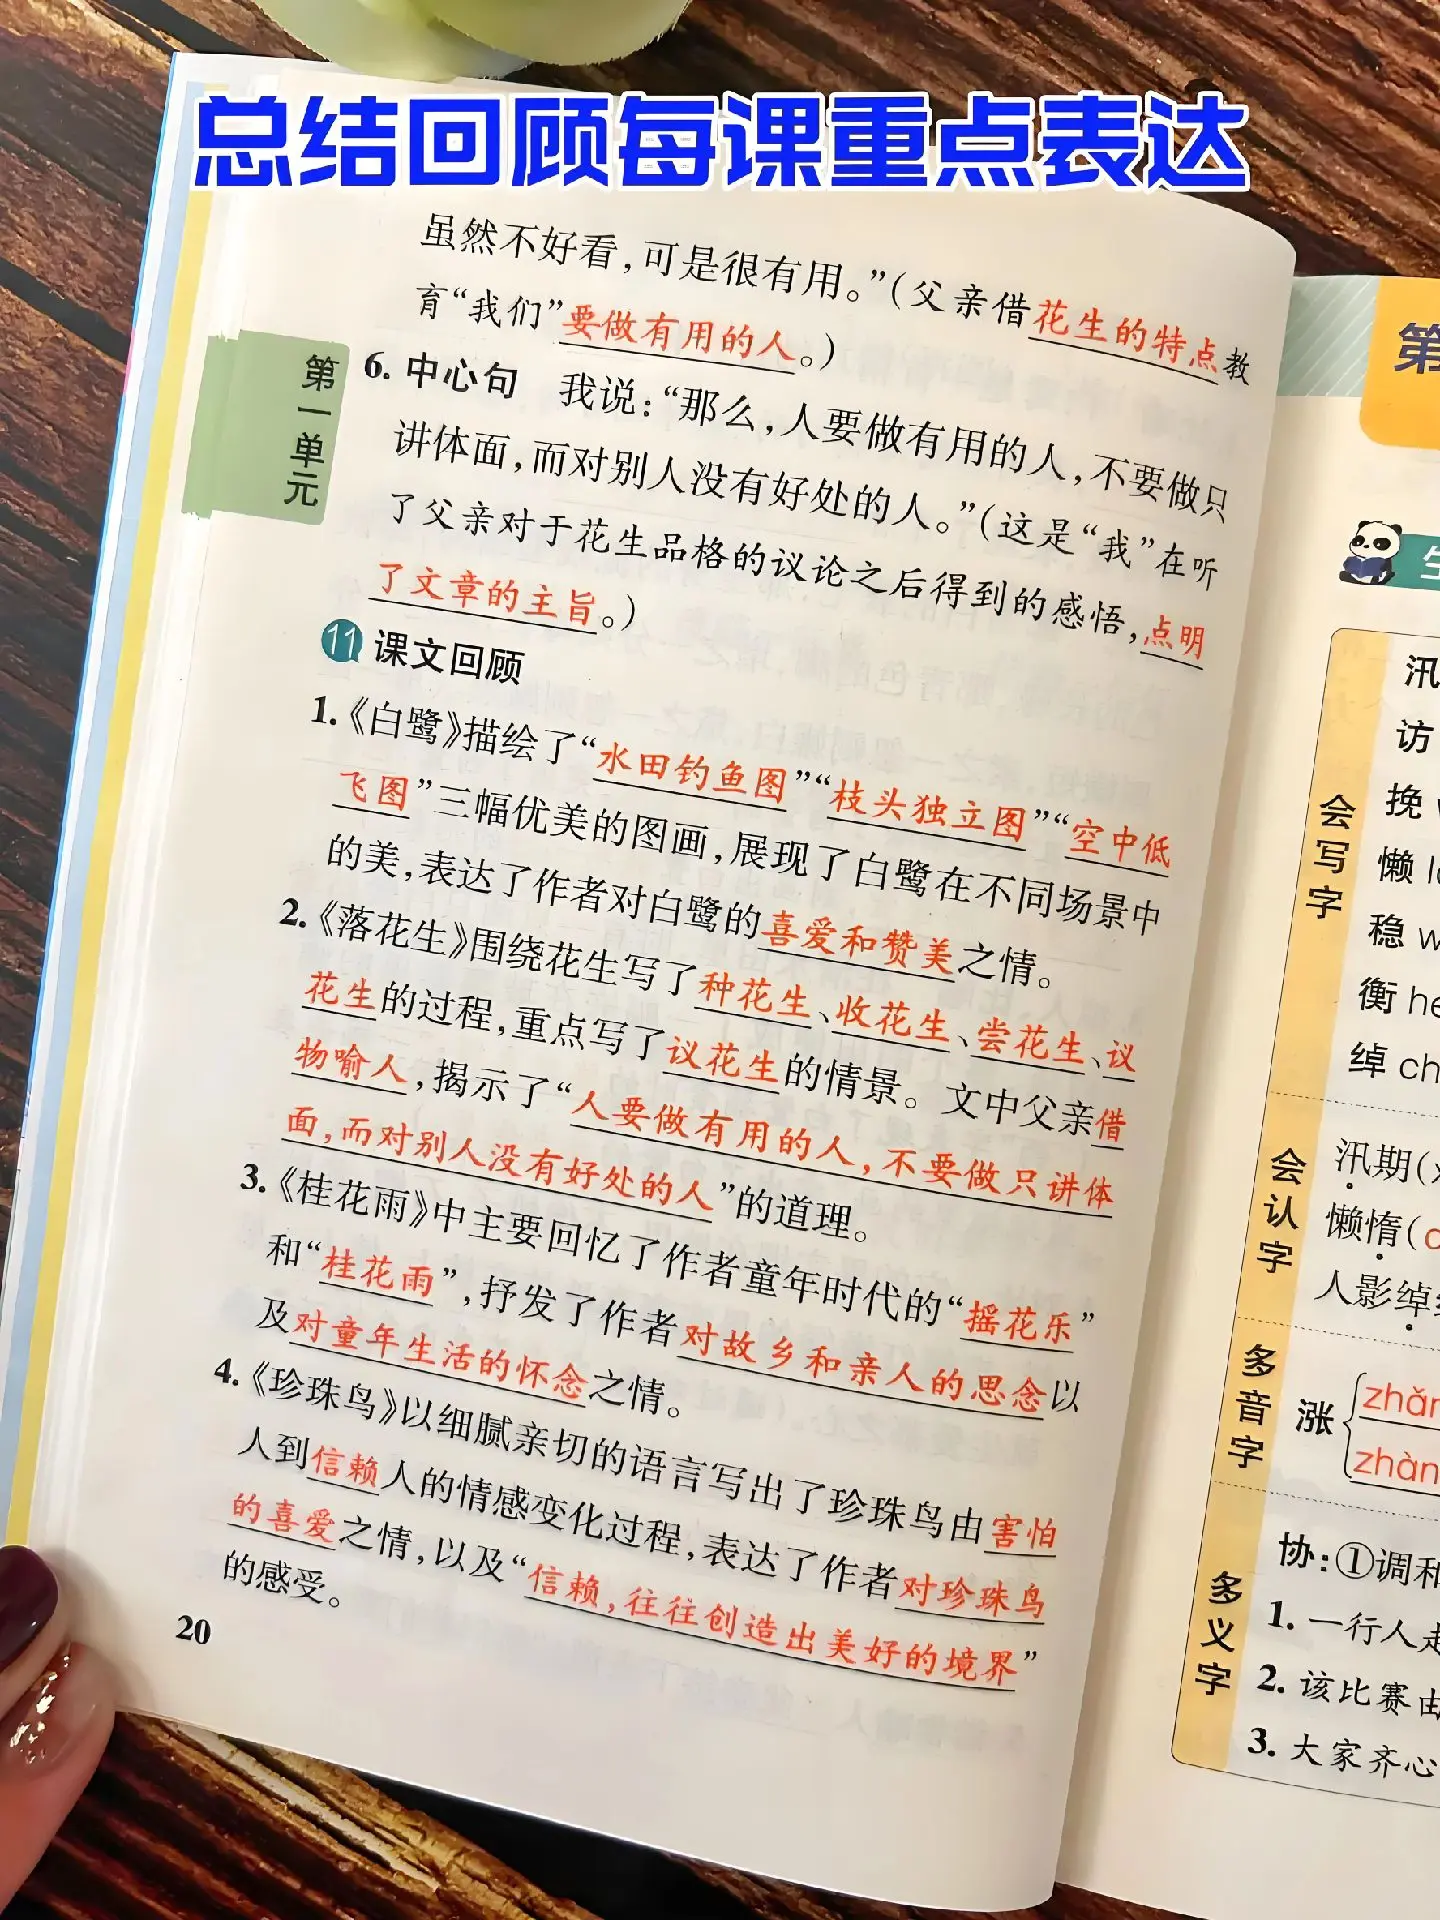 总结回顾每课重点表达
虽然不好看，可是很有用。”（父亲借花生的特点教
育“我们”要做有用的人。）
第一单元
6. 中心句 我说：“那么，人要做有用的人，不要做只
讲体面，而对别人没有好处的人。”（这是“我”在听
了父亲对于花生品格的议论之后得到的感悟，点明
了文章的主旨。）
11 课文回顾
1.《白鹭》描绘了“水田钓鱼图”“枝头独立图”“空中低
飞图”三幅优美的图画，展现了白鹭在不同场景中
的美，表达了作者对白鹭的喜爱和赞美之情。
2.《落花生》围绕花生写了种花生、收花生、尝花生、议
花生的过程，重点写了议花生的情景。文中父亲借
物喻人，揭示了“人要做有用的人，不要做只讲体
面，而对别人没有好处的人”的道理。
3.《桂花雨》中主要回忆了作者童年时代的“摇花乐”
和“桂花雨”，抒发了作者对故乡和亲人的思念以
及对童年生活的怀念之情。
4.《珍珠鸟》以细腻亲切的语言写出了珍珠鸟由害怕
人到信赖人的情感变化过程，表达了作者对珍珠鸟
的喜爱之情，以及“信赖，往往创造出美好的境界”
的感受。
20
第
会写字
汛
访
挽
懒
稳
衡 he
绰 ch
会认字
汛期(
懒惰(
人影绰
多音字
涨
zhǎn
zhàn
多义字
协：①调和
1. 一行人走
2. 该比赛由
3. 大家齐心